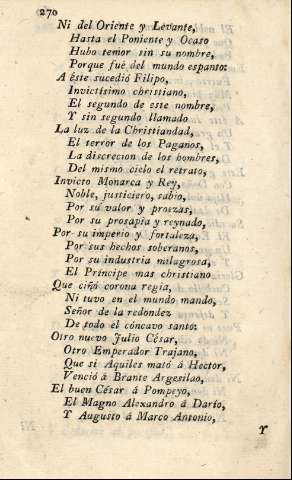 270
Ni del Oriente y Levante,
Hasta el Poniente y Ocaso
Hubo temor sin su nombre,
Porque fué del mundo espanto:
A éste sucedió Filipo,
Invictísimo christiano,
El segundo de este nombre,
Y sin segundo llamado
La luz de la Christiandad,
El terror de los Paganos,
La discrecion de los hombres,
Del mismo cielo el retrato,
Invicto Monarca y Rey,
Noble, justiciero, sabio,
Por su valor y proezas,
Por su prosapia y reynado,
Por su imperio y fortaleza,
Por sus hechos soberanos,
Por su industria milagrosa,
El Príncipe mas christiano
Que ciñó corona regia,
Ni tuvo en el mundo mando,
Señor de la redondez
De todo el cóncavo santo:
Otro nuevo Julio César,
Otro Emperador Trajano,
Que si Aquiles mató á Hector,
Venció á Brante Argesilao,
El buen César á Pompeyo,
El Magno Alexandro á Darío,
Y Augusto á Marco Antonio,
Y